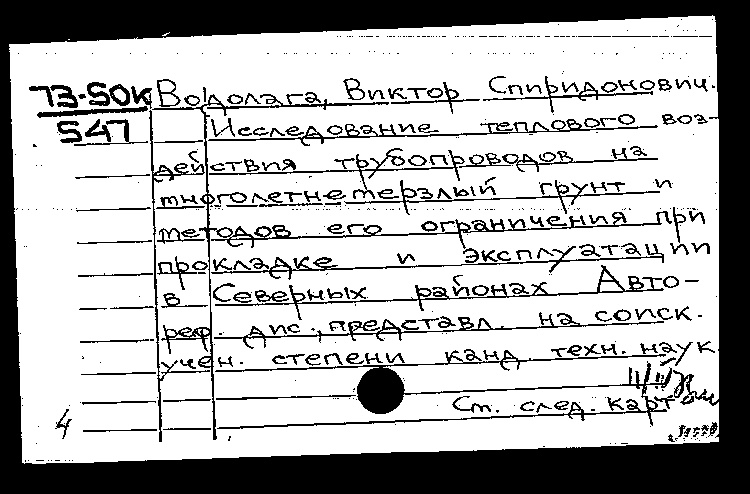 73-50к Водолага, Виктор Спиридонович.
547 Исследование теплового воз-
действия трубопроводов на
многолетнемерзлый грунт и
методов его ограничения при
прокладке и эксплуатации
в Северных районах Авто-
реф. дис., представл. на соиск.
учен. степени канд техн. наук
Ст. след. карт
4